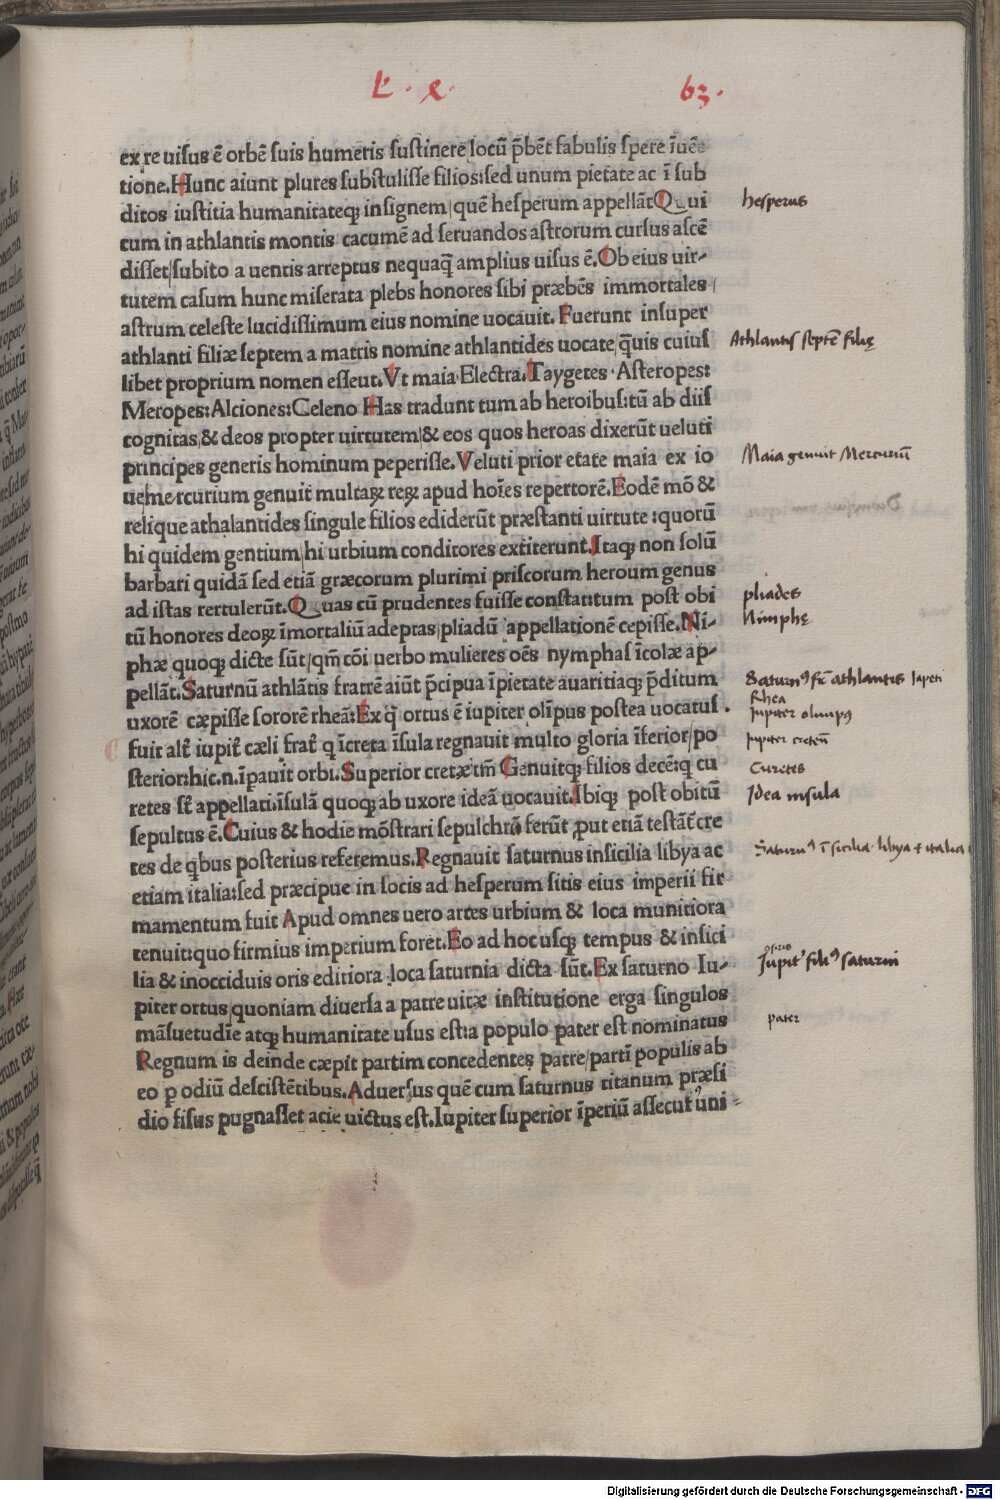 L. x. 63.
ex re uisus ē orbē suis humeris sustinere locū p̄bēt fabulis spere īuēc
tione.Hunc aiunt plures substulisse filios:sed unum pietate ac ī sub
ditos iustitia humanitateqꝫ insignem/quē hesperum appellāt Qui
cum in athlantis montis cacumē ad seruandos astrorum cursus ascē
disset/subito a uentis arreptus nequaq̄ amplius uisus ē.Ob eius uir-
tutem casum hunc miserata plebs honores sibi præbēs immortales/
astrum celeste lucidissimum eius nomine uocauit. Fuerunt insuper
athlanti filiæ septem a matris nomine athlantides uocate/q̄uis cuius
libet proprium nomen esseut.Vt maia.Electra.Taygetes.Asteropes:
Meropes:Alciones:Celeno Has tradunt tum ab heroibus:tū ab diis
cognitas,& deos propter uirtutem/& eos quos heroas dixerūt ueluti
principes generis hominum peperisse.Veluti prior etate maia ex io
ue/mercurium genuit multaꝝ reꝝ apud hoīes repertorē.Eodē mō &
relique athalantides singule filios ediderūt præstanti uirtute:quorū
hi quidem gentium/hi urbium conditores extiterunt.Itaqꝫ non solū
barbari quidā sed etiā græcorum plurimi priscorum heroum genus
ad istas rertulerūt.Quas cū prudentes fuisse constat:tum post obi
tū honores deoꝝ īmortaliū adeptas/pliadū appellationē cepisse.Ni-
phæ quoqꝫ dicte sūt/qm̄ cōi uerbo mulieres oēs nymphas īcolæ ap-
pellāt.Saturnū athlātis fratrē aiūt p̄cipua īpietate auaritiaqꝫ p̄ditum
uxorē cæpisse sororē rheā:Ex q̄ ortus ē iupiter olīpus postea uocatus.
fuit alt̄ iupit̄ cæli frat̄ q īcreta īsula regnauit multo gloria īferior/po
sterior:hic.n.īpauit orbi.Superior cretæ tm̄ Genuitqꝫ filios decē:q cu
retes st̄ appellati:īsulā quoqꝫ ab uxore ideā uocauit.Ibiqꝫ post obitū
sepultus ē.Cuius & hodie mōstrari sepulchrū ferūt ꝓut etiā testāt̄ cre
tes de qbus posterius referemus.Regnauit saturnus insicilia libya ac
etiam italia:sed præcipue in locis ad hesperum sitis eius imperii fir
mamentum fuit Apud omnes uero artes urbium & loca munitiora
tenuit:quo firmius imperium foret.Eo ad hoc usqꝫ tempus & insici
lia & inocciduis oris editiora loca saturnia dicta sūt.Ex saturno Iu-
piter ortus/quoniam diuersa a patre uitæ institutione erga singulos
māsuetudīe atqꝫ humanitate usus est:a populo pater est nominatus
Regnum is deinde cæpit partim concedentes patre/partī populis ab
eo ꝑ odiū desciscētibus.Aduersus quē cum saturnus titanum præsi
dio fisus pugnasset acie uictus est.Iupiter superior īperiū assecut᾽uni
hesperus
Athlantis septē filię
Maia genuit Mercuriū
pliades
Nimphę
Saturnꝰ fr̄ athlantis Iapeti
Rhea
Jupiter olimpꝰ
Jupiter creteñ
Curetes
Idea insula
Saturnꝰ ī sicilia libya et italia
osiris
Jupit᾽ filiꝰ saturni
pater
Digitalisierung gefördert durch die Deutsche Forschungsgemeinschaft - DFG